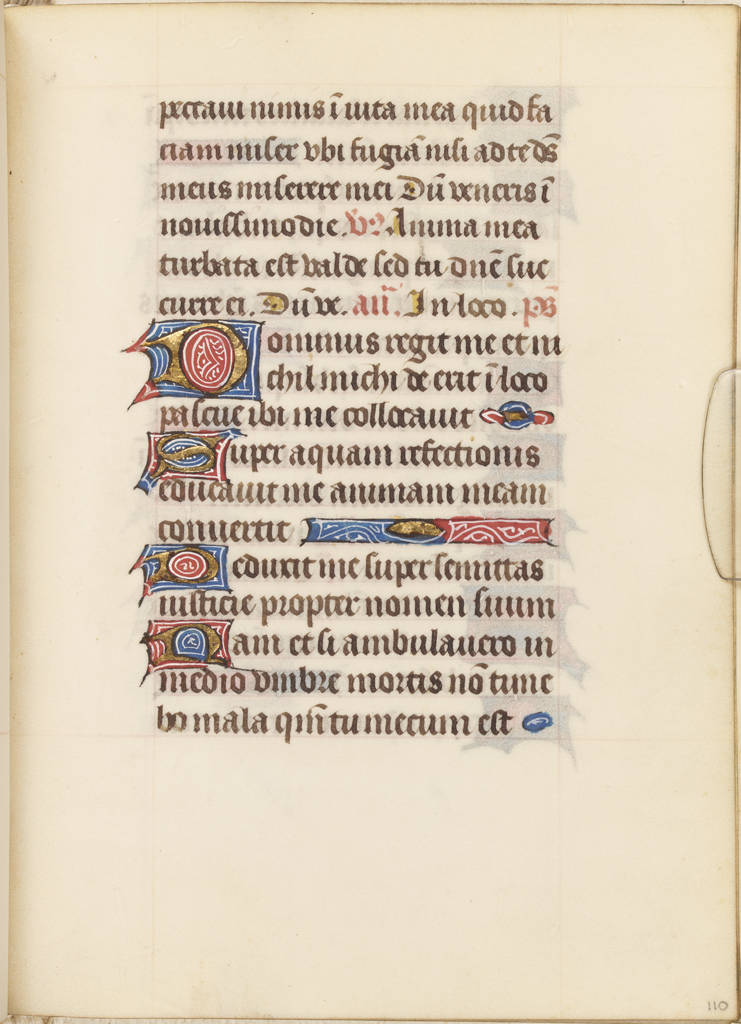 peccaui nimis ī uita mea quid fa
ciam miser vbi fugiā nisi ad te ds̄
meus miserere mei Dū veneris ī
nouissimo die. V̄ Anima mea
turbata est valde sed tu dn̄e suc
curre ei. Dū ve. añ. In loco. ps̄
Dominus regit me et ni
chil michi de erit ī loco
pascue ibi me collocauit
Super aquam refectionis
educauit me animam meam
conuertit
Deduxit me super semittas
iusticie propter nomen suum
Nam et si ambulauero in
medio vmbre mortis nō time
bo mala qm̄ tu mecum est
110